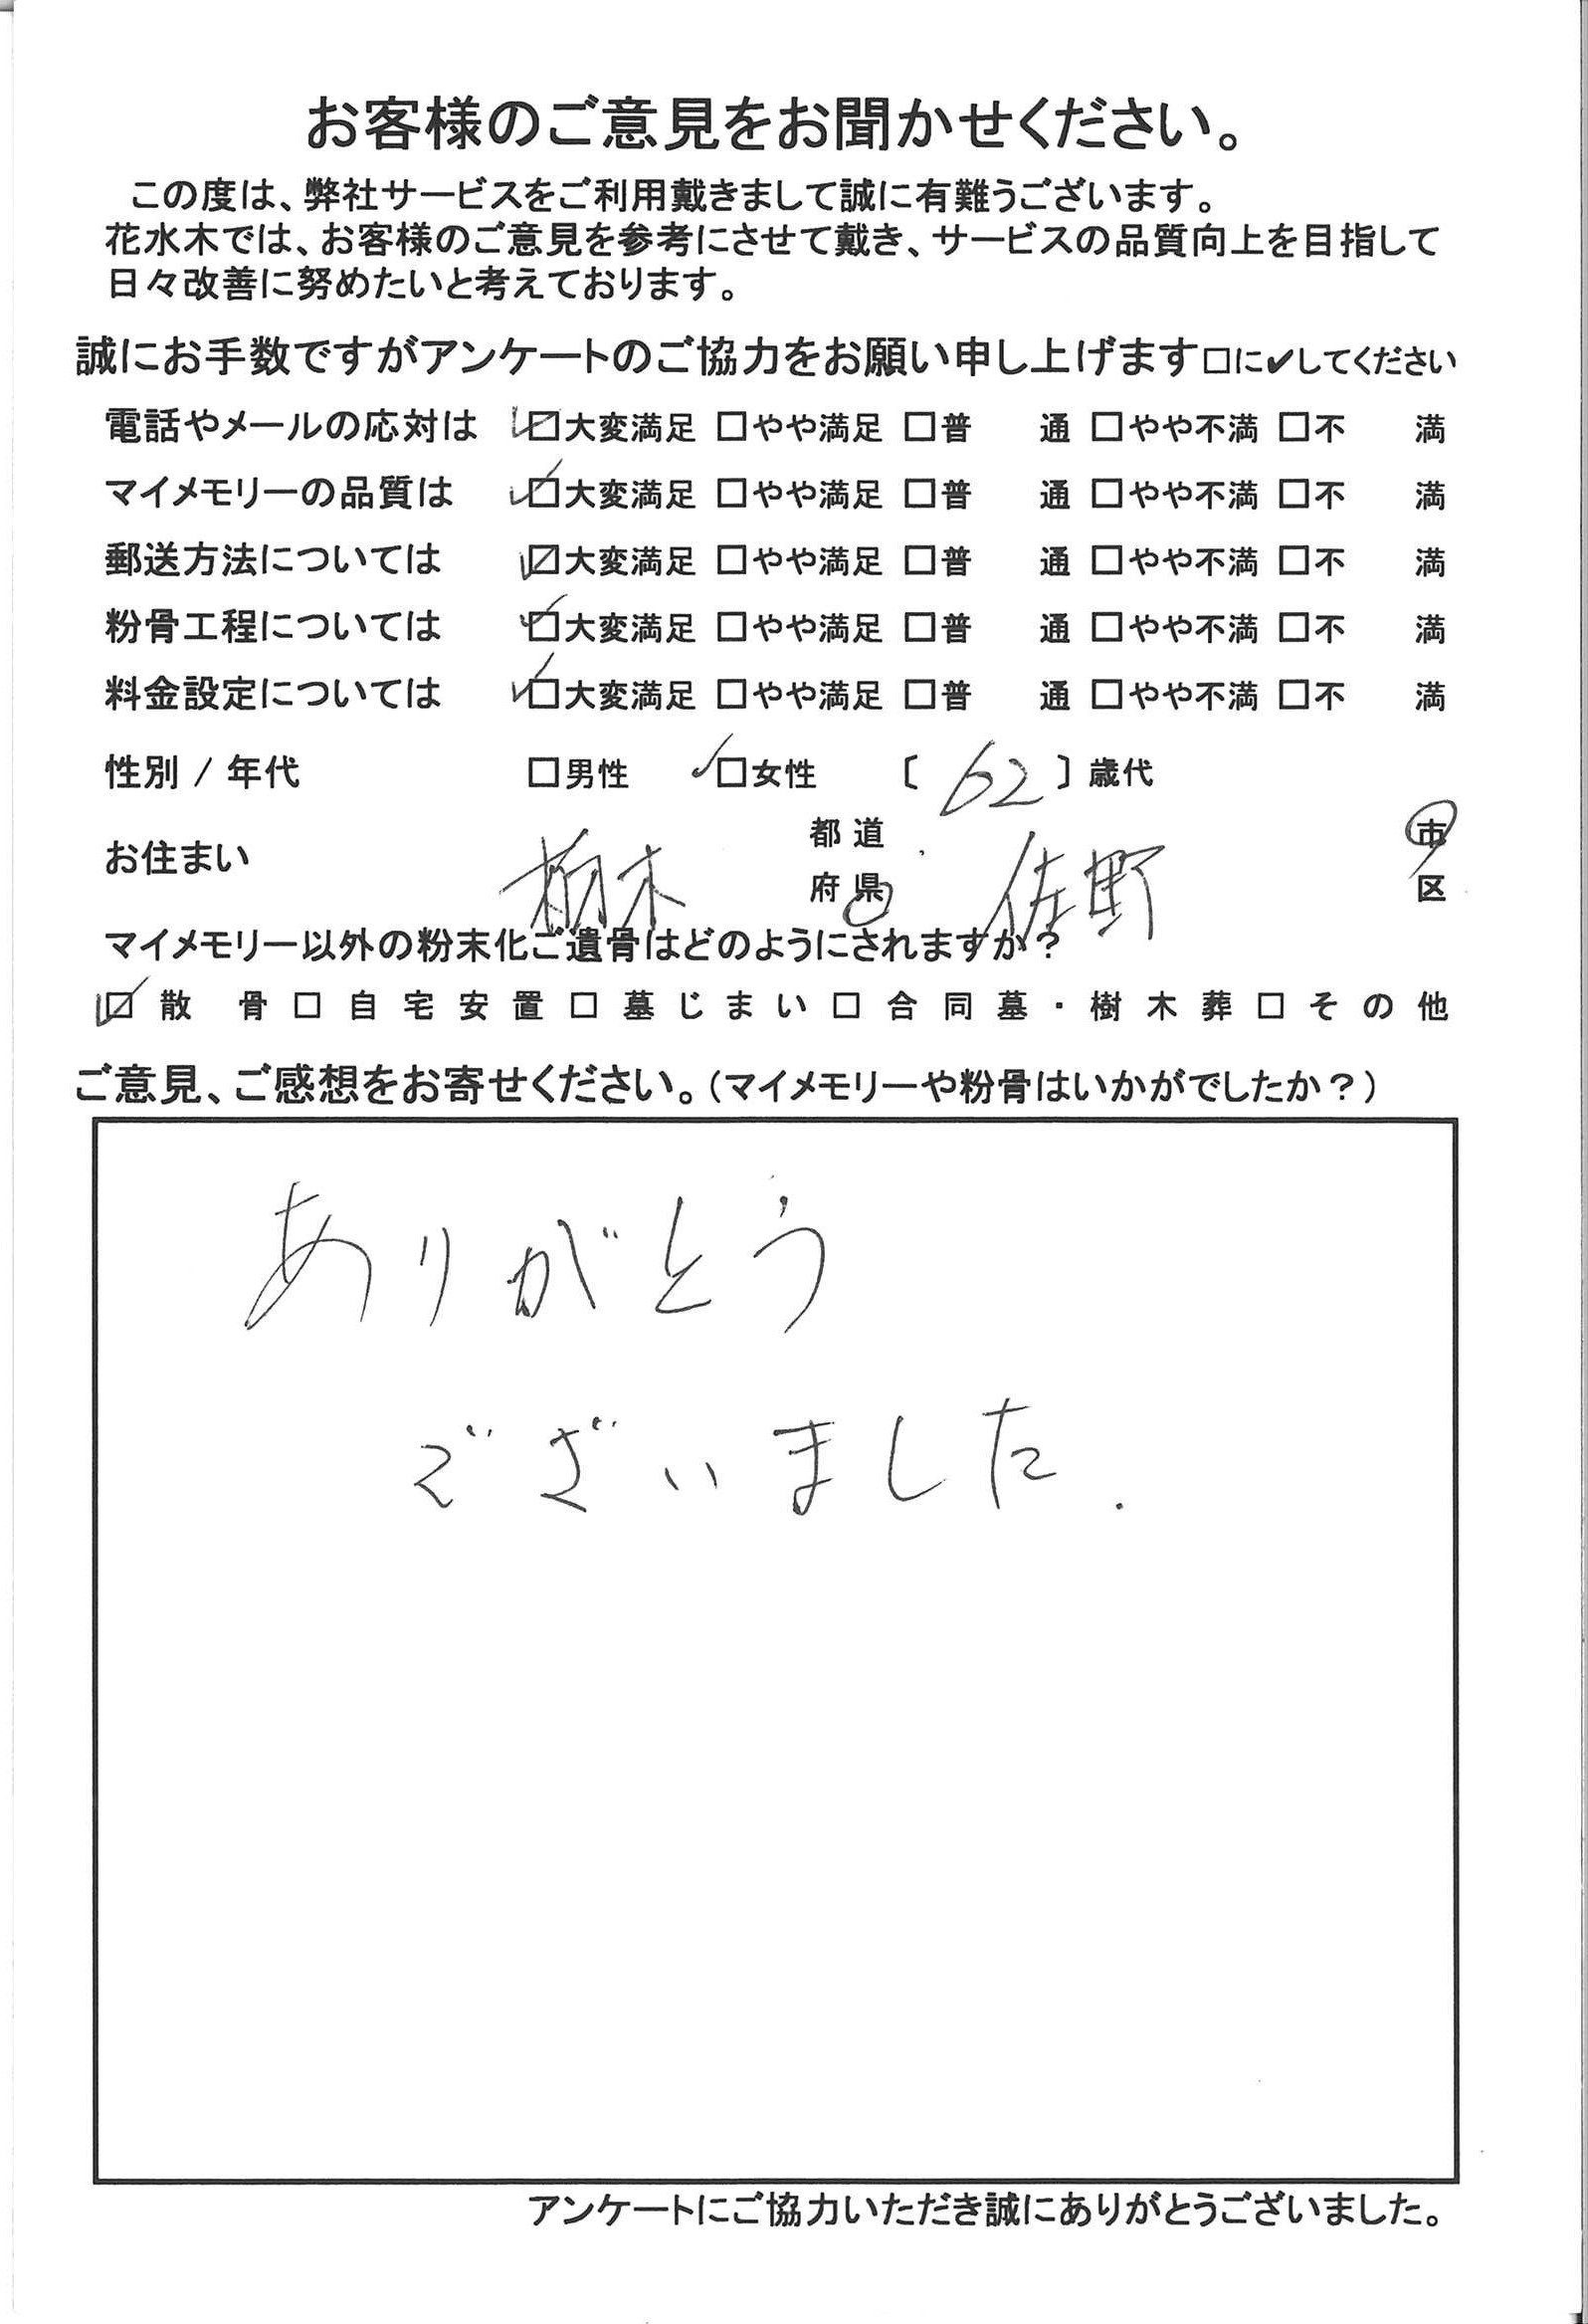 お客様のご意見をお聞かせください。
この度は、弊社サービスをご利用戴きまして誠に有難うございます。
花水木では、お客様のご意見を参考にさせて戴き、サービスの品質向上を目指して
日々改善に努めたいと考えております。
誠にお手数ですがアンケートのご協力をお願い申し上げます□に✔してください
電話やメールの応対は ☑大変満足 □やや満足 □普 通 □やや不満 □不 満
マイメモリーの品質は ☑大変満足 □やや満足 □普 通 □やや不満 □不 満
郵送方法については ☑大変満足 □やや満足 □普 通 □やや不満 □不 満
粉骨工程については ☑大変満足 □やや満足 □普 通 □やや不満 □不 満
料金設定については ☑大変満足 □やや満足 □普 通 □やや不満 □不 満
性別 / 年代 □男性 ☑女性 〔 62 〕歳代
お住まい 栃木 都道府県 佐野 市区
マイメモリー以外の粉末化ご遺骨はどのようにされますか?
☑散 骨 □自宅安置 □墓じまい □合同墓・樹木葬 □その他
ご意見、ご感想をお寄せください。(マイメモリーや粉骨はいかがでしたか?)
ありがとう
ございました.
アンケートにご協力いただき誠にありがとうございました。